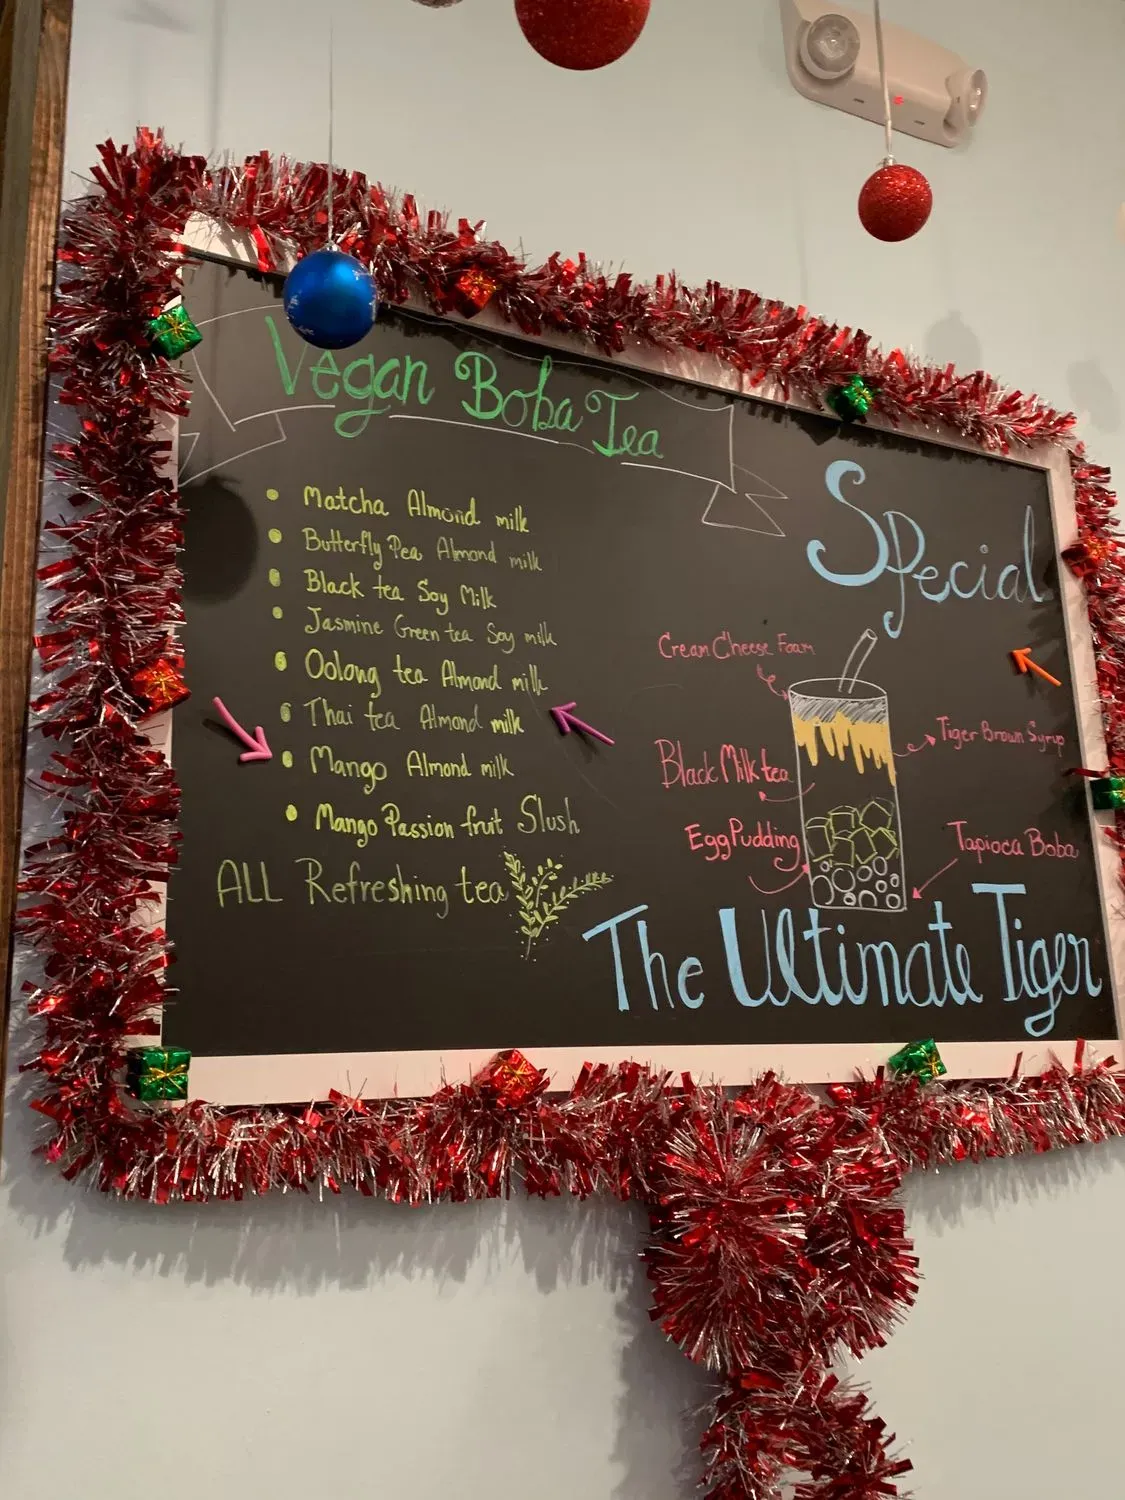 Vegan Boba Tea
• Matcha Almond milk
• Butterfly Pea Almond milk
• Black tea Soy Milk
• Jasmine Green tea Soy milk
• Oolong tea Almond milk
• Thai tea Almond milk
• Mango Almond milk
• Mango Passion fruit Slush
ALL Refreshing tea
Special
Cream Cheese Foam
Tiger Brown Syrup
Black Milk tea
Egg Pudding
Tapioca Boba
The Ultimate Tiger